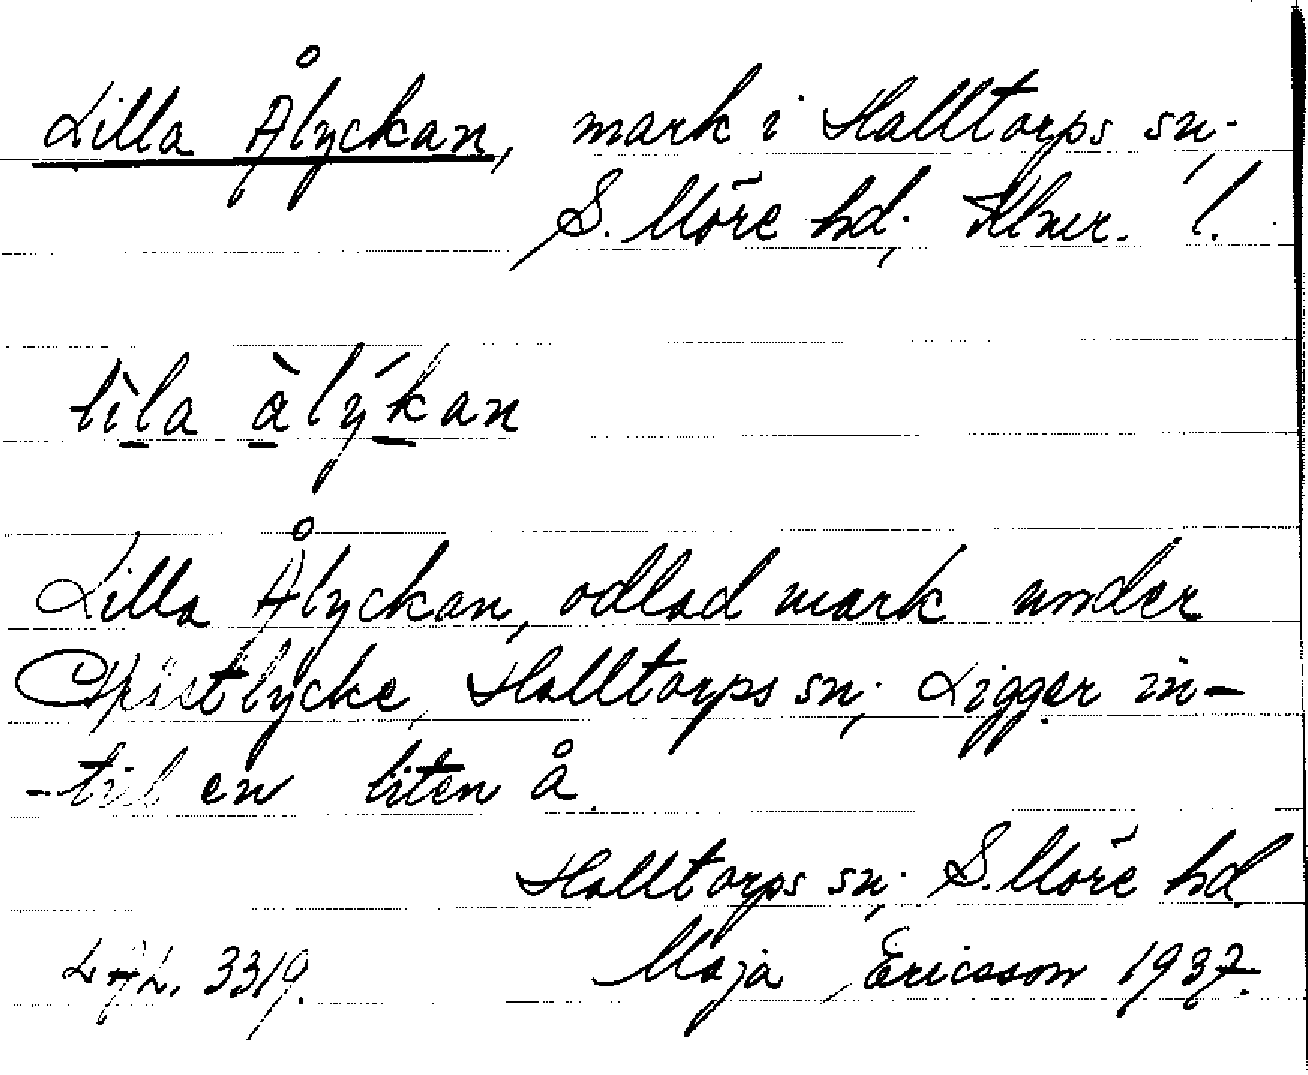 Lilla Ålyckan, mark i Halltorps sn;
S. Möre hd; Klmr. l.
lìla àlýkan
Lilla Ålyckan, odlad mark under
lycke, Halltorps sn; Ligger in-
-till en liten å.
Halltorps sn; S. Möre hd.
LAL. 3319. Maja Ericsson 1937.